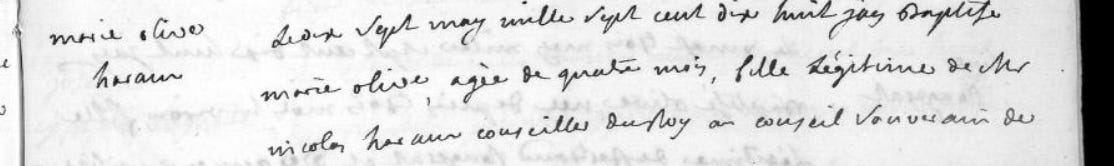 marie olive
haram
Le dix sept may mille sept cent dix huit jay Baptise
marie olive, agée de quatre mois, fille Légitime de Mr
nicolas haram conseiller du Roy au conseil souverain de